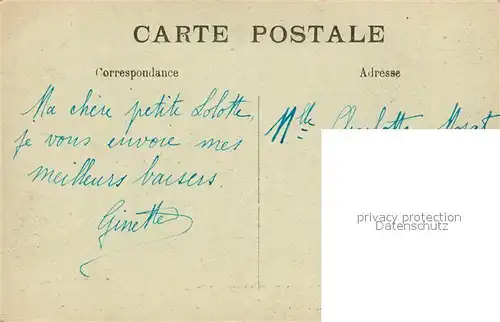 CARTE POSTALE
Correspondance
Adresse
Ma chère petite Lolotte,
je vous envoie mes
meilleurs baisers.
Ginette
Mlle Charlotte
privacy protection
Datenschutz